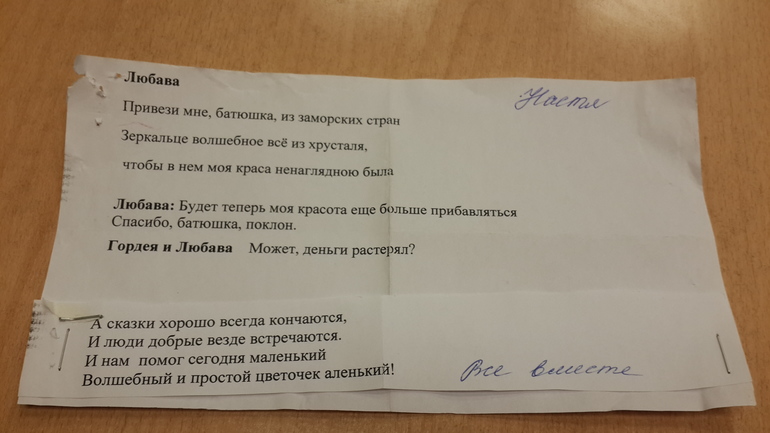 Любава
Настя
Привези мне, батюшка, из заморских стран
Зеркальце волшебное всё из хрусталя,
чтобы в нем моя краса ненаглядною была
Любава: Будет теперь моя красота еще больше прибавляться
Спасибо, батюшка, поклон.
Гордея и Любава Может, деньги растерял?
А сказки хорошо всегда кончаются,
И люди добрые везде встречаются.
И нам помог сегодня маленький
Волшебный и простой цветочек аленький!
Все вместе